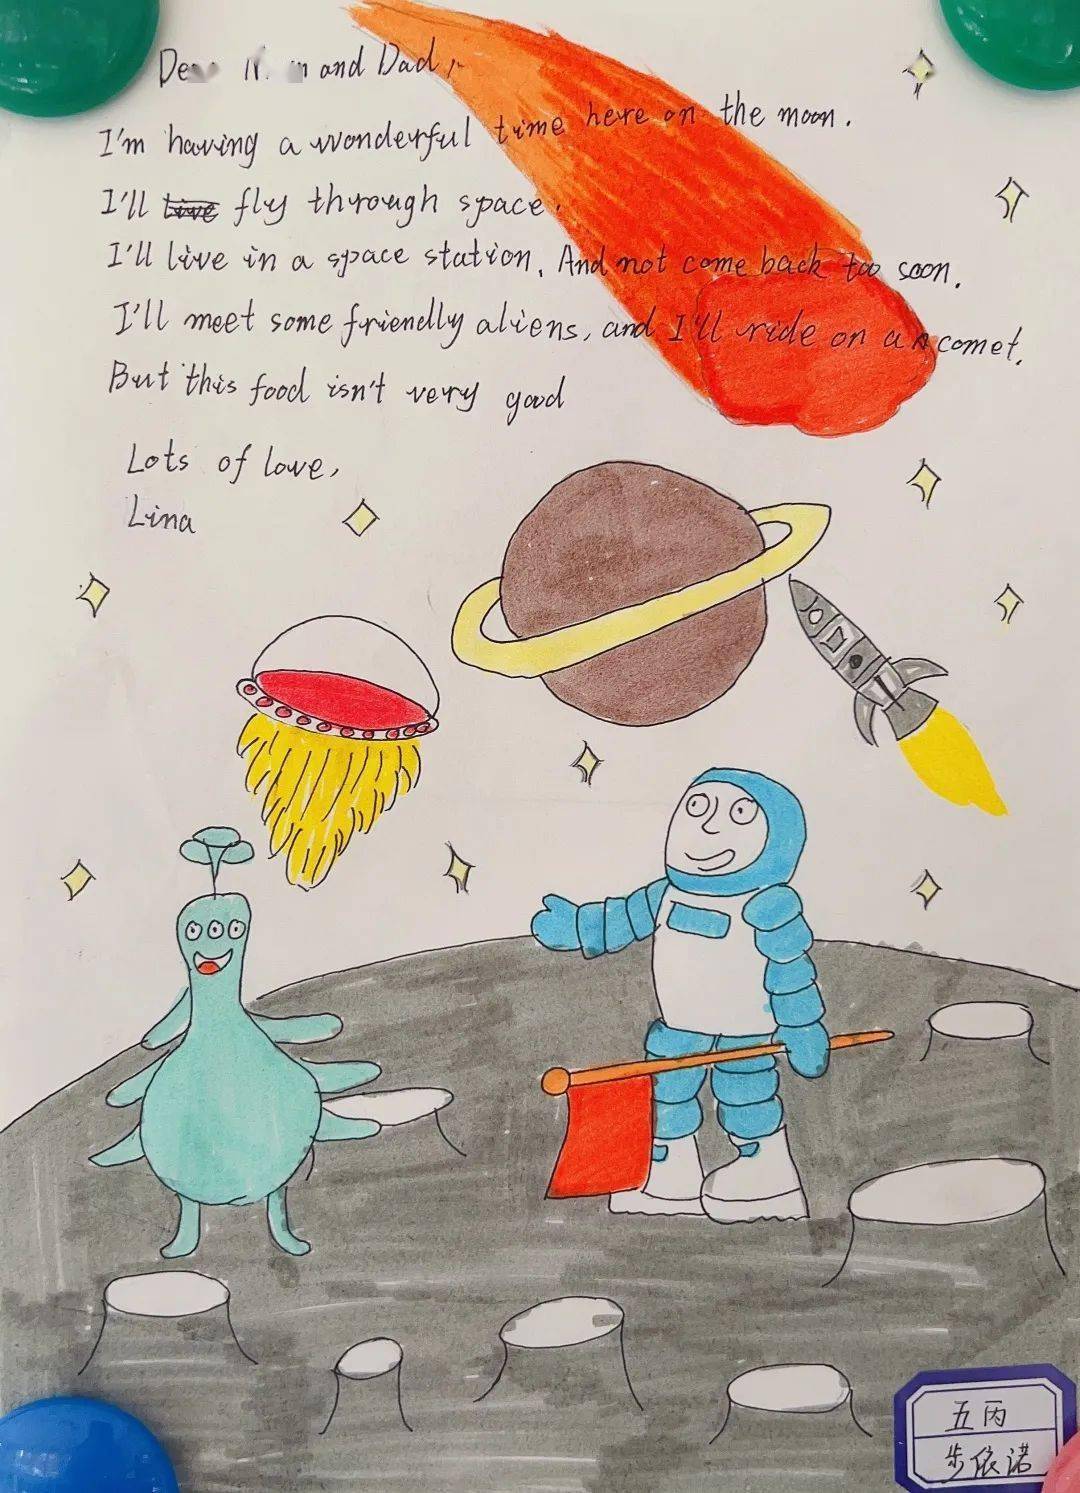 and Dad,
I'm having a wonderful time here on the moon.
I'll live fly through space.
I'll live in a space station. And not come back too soon.
I'll meet some friendly aliens, and I'll ride on a comet.
But this food isn't very good
Lots of love,
Lina
五丙
步依诺